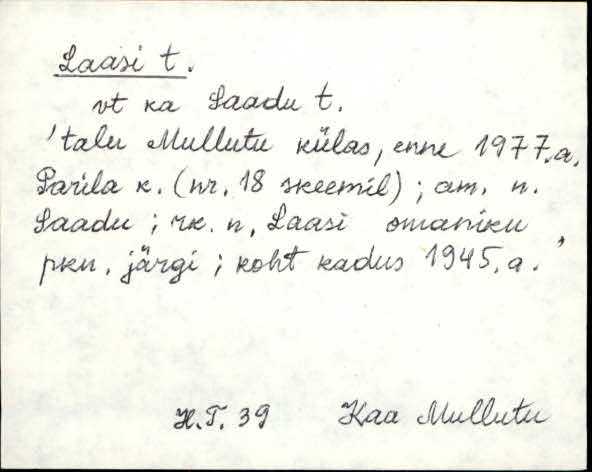 Laasi t.
vt ka Saadu t.
'talu Mullutu külas, enne 1977.a.
Parila k. (nr. 18 skeemil); am. n.
Saadu; rk. n. Laasi omaniku
pkn. järgi; koht kadus 1945.a.'
H.T. 39 Kaa Mullutu